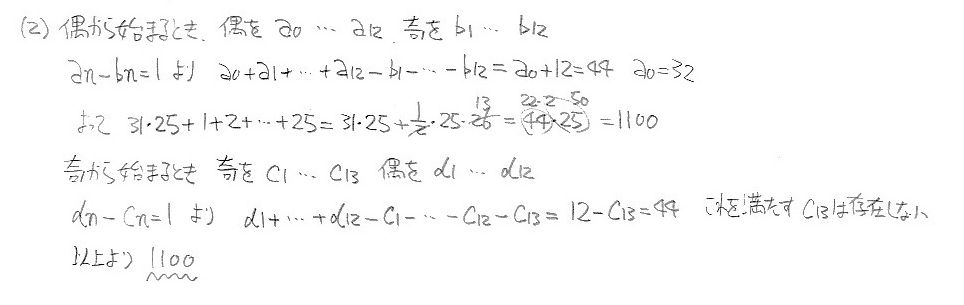 (2) 偶から始まるとき、偶を a0 … a12 奇を b1 … b12
an-bn=1 より a0+a1+…+a12-b1-…-b12=a0+12=44 a0=32
よって 31・25+1+2+…+25=31・25+1/2・25・26 13=44・25 22・2 50=1100
奇から始まるとき 奇を C1 … C13 偶を d1 … d12
dn-Cn=1 より d1+…+d12-C1-…-C12-C13=12-C13=44 これを満たす C13は存在しない
以上より 1100